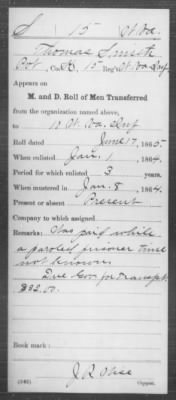 S 15 W. Va.
Thomas Smith
Pvt, Co. K, 15 Reg't W. Va. Inf.
Appears on
M. and D. Roll of Men Transferred
from the organization named above,
to 10 W. Va. Inf
Roll dated June 17, 1865.
When enlisted Jan. 1, 1864.
Period for which enlisted 3 years.
When mustered in Jan. 8, 1864.
Present or absent Present
Company to which assigned
Remarks: Was paid while
a paroled prisoner time
not known.
Due Gov. for Transpt.
Book mark:
(542) Copyist.